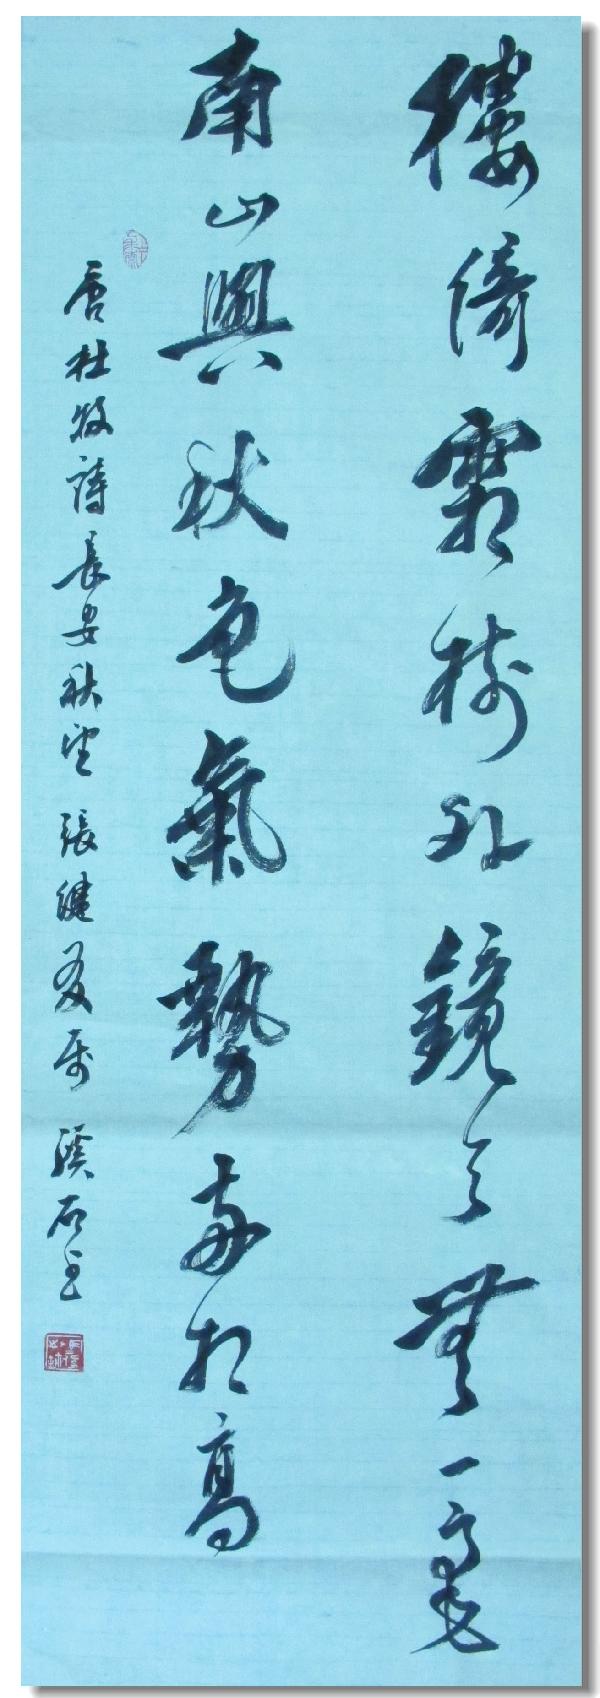 樓倚霜樹外鏡天無一毫
南山與秋色氣勢兩相高
唐杜牧詩長安秋望 張健友属